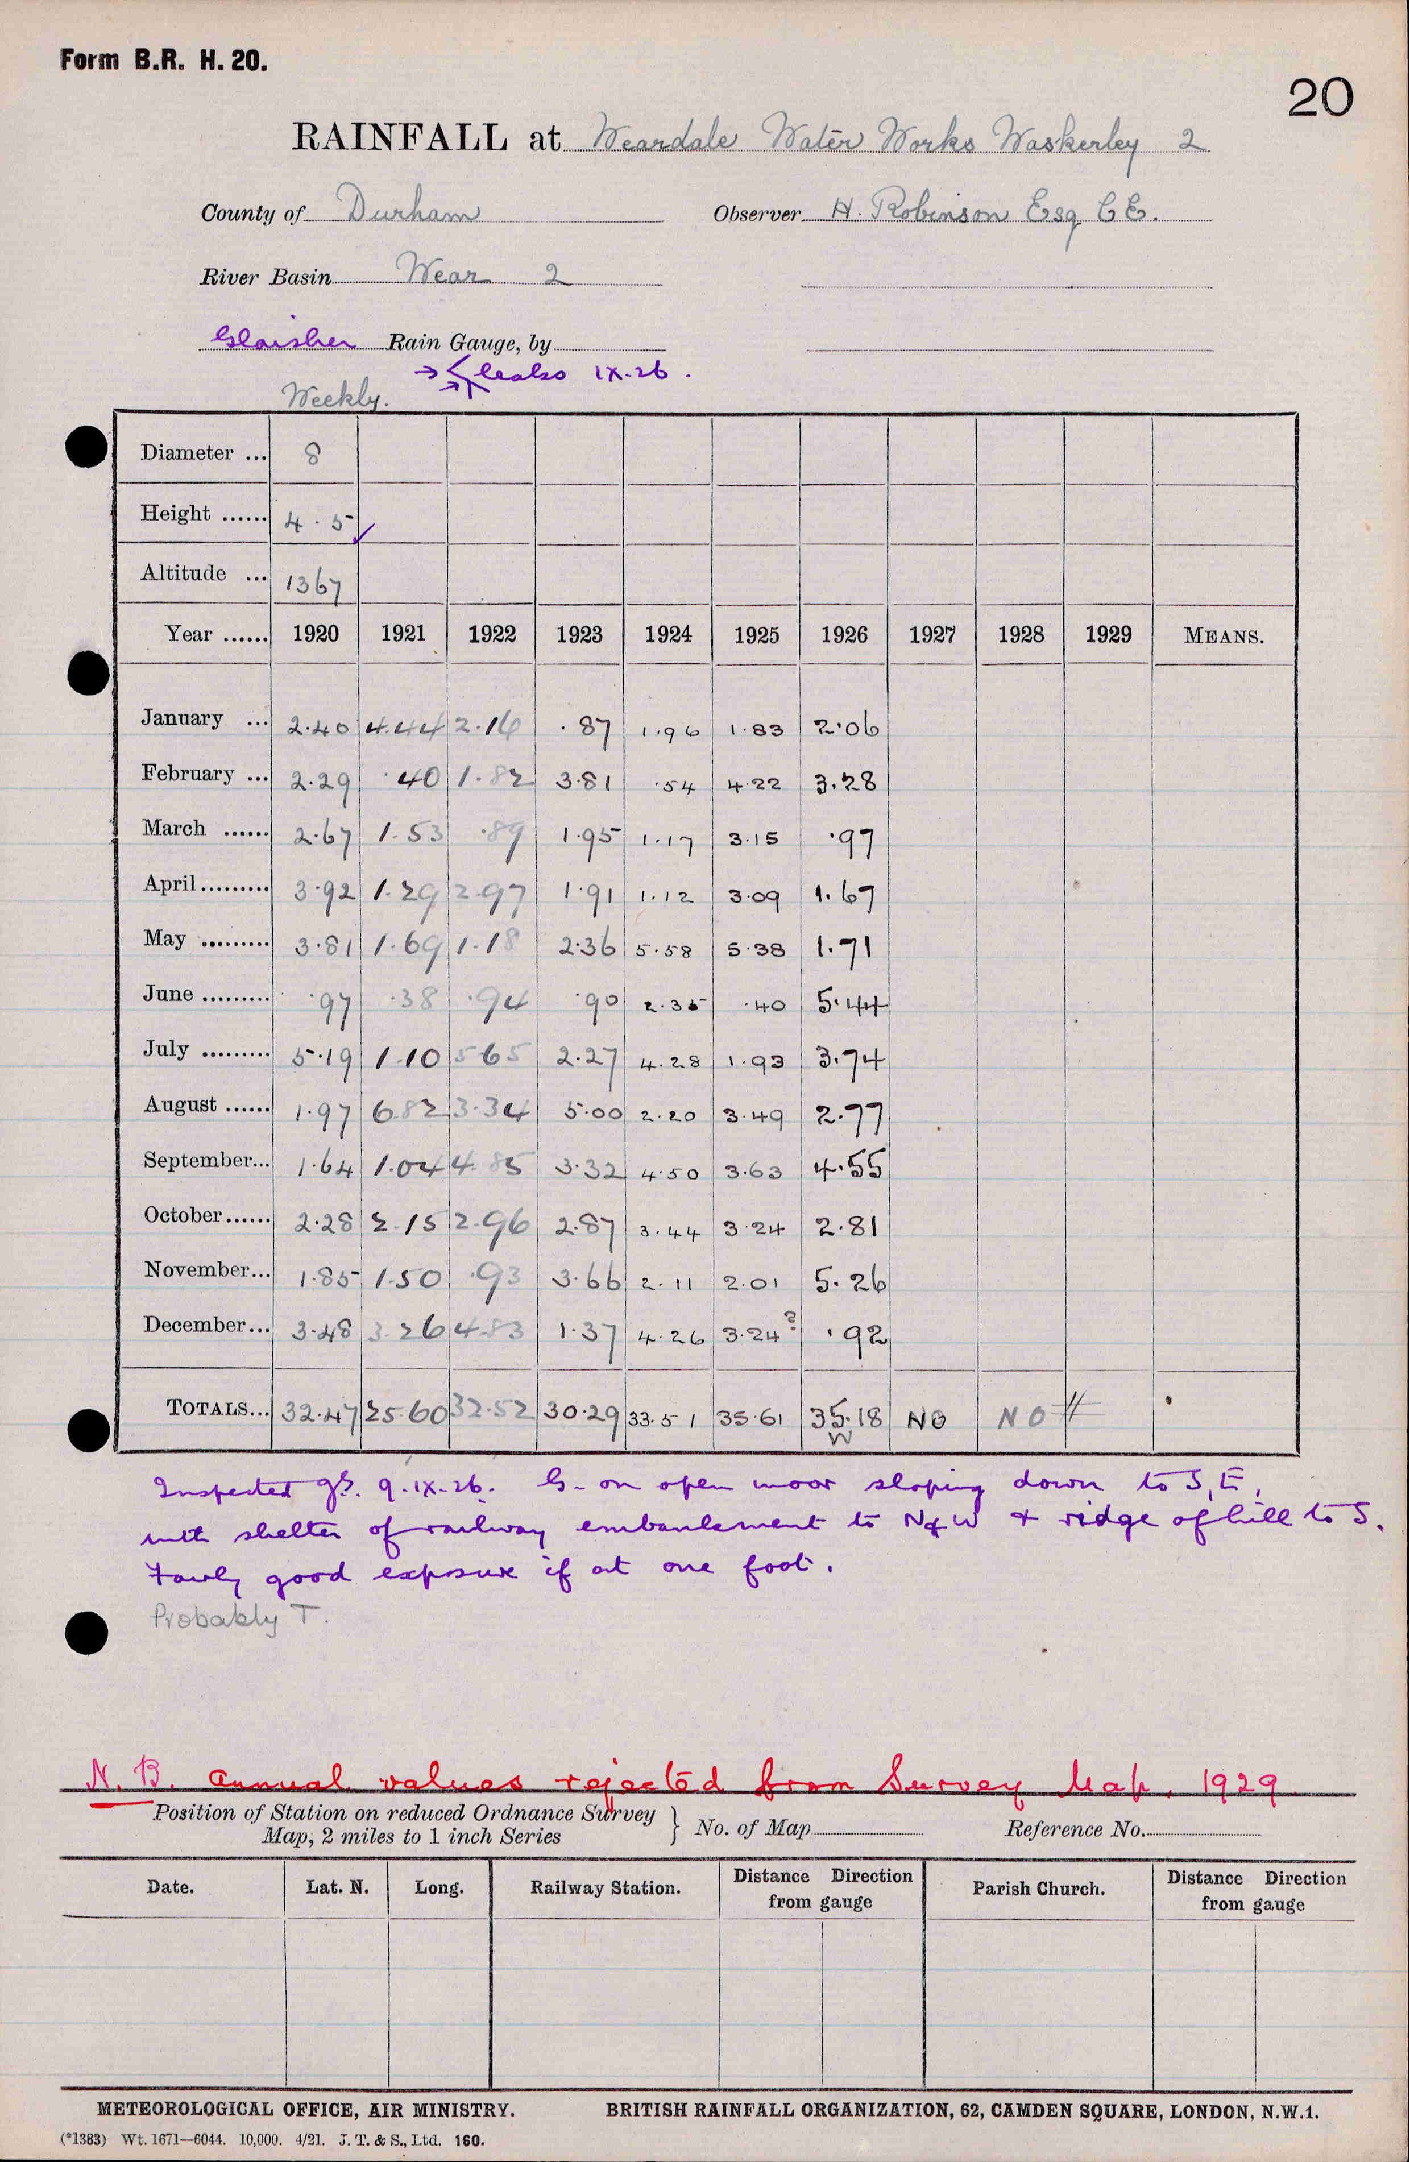 Form B.R. H. 20.
20
RAINFALL at Weardale Water Works Waskerley 2
County of Durham Observer H. Robinson Esq C E.
River Basin Wear 2
Glaisher Rain Gauge, by
→ leaks IX.26.
Weekly.
Diameter ... 8
Height ...... 4.5 ✓
Altitude ... 1367
Year ...... 1920 1921 1922 1923 1924 1925 1926 1927 1928 1929 MEANS.
January ... 2.40 4.44 2.16 .87 1.96 1.83 2.06
February ... 2.29 .40 1.82 3.81 .54 4.22 3.28
March ...... 2.67 1.53 .89 1.95 1.17 3.15 .97
April......... 3.92 1.29 2.97 1.91 1.12 3.09 1.67
May ......... 3.81 1.69 1.18 2.36 5.58 5.38 1.71
June ......... .97 .38 .94 .90 2.35 .40 5.44
July ......... 5.19 1.10 5 65 2.27 4.28 1.93 3.74
August ...... 1.97 6.82 3.34 5.00 2.20 3.49 2.77
September... 1.64 1.04 4.85 3.32 4.50 3.63 4.55
October...... 2.28 2.15 2.96 2.87 3.44 3.24 2.81
November... 1.85 1.50 .93 3.66 2.11 2.01 5.26
December... 3.48 3.26 4.83 1.37 4.26 3.24? .92
TOTALS... 32.47 25.60 32.52 30.29 33.51 35.61 35.18 NO NO //
W
Inspected 9.IX.26. G. on open moor sloping down to S, E,
with shelter of railway embankment to N & W & ridge of hill to S.
Fairly good exposure if at one foot.
Probably T.
N.B. annual values rejected from Survey Map. 1929
Position of Station on reduced Ordnance Survey Map, 2 miles to 1 inch Series } No. of Map Reference No.
Date. Lat. N. Long. Railway Station. Distance Direction from gauge Parish Church. Distance Direction from gauge
METEOROLOGICAL OFFICE, AIR MINISTRY. BRITISH RAINFALL ORGANIZATION, 62, CAMDEN SQUARE, LONDON, N.W.1.
(*1383) Wt. 1671—6044. 10,000. 4/21. J. T. & S., Ltd. 160.